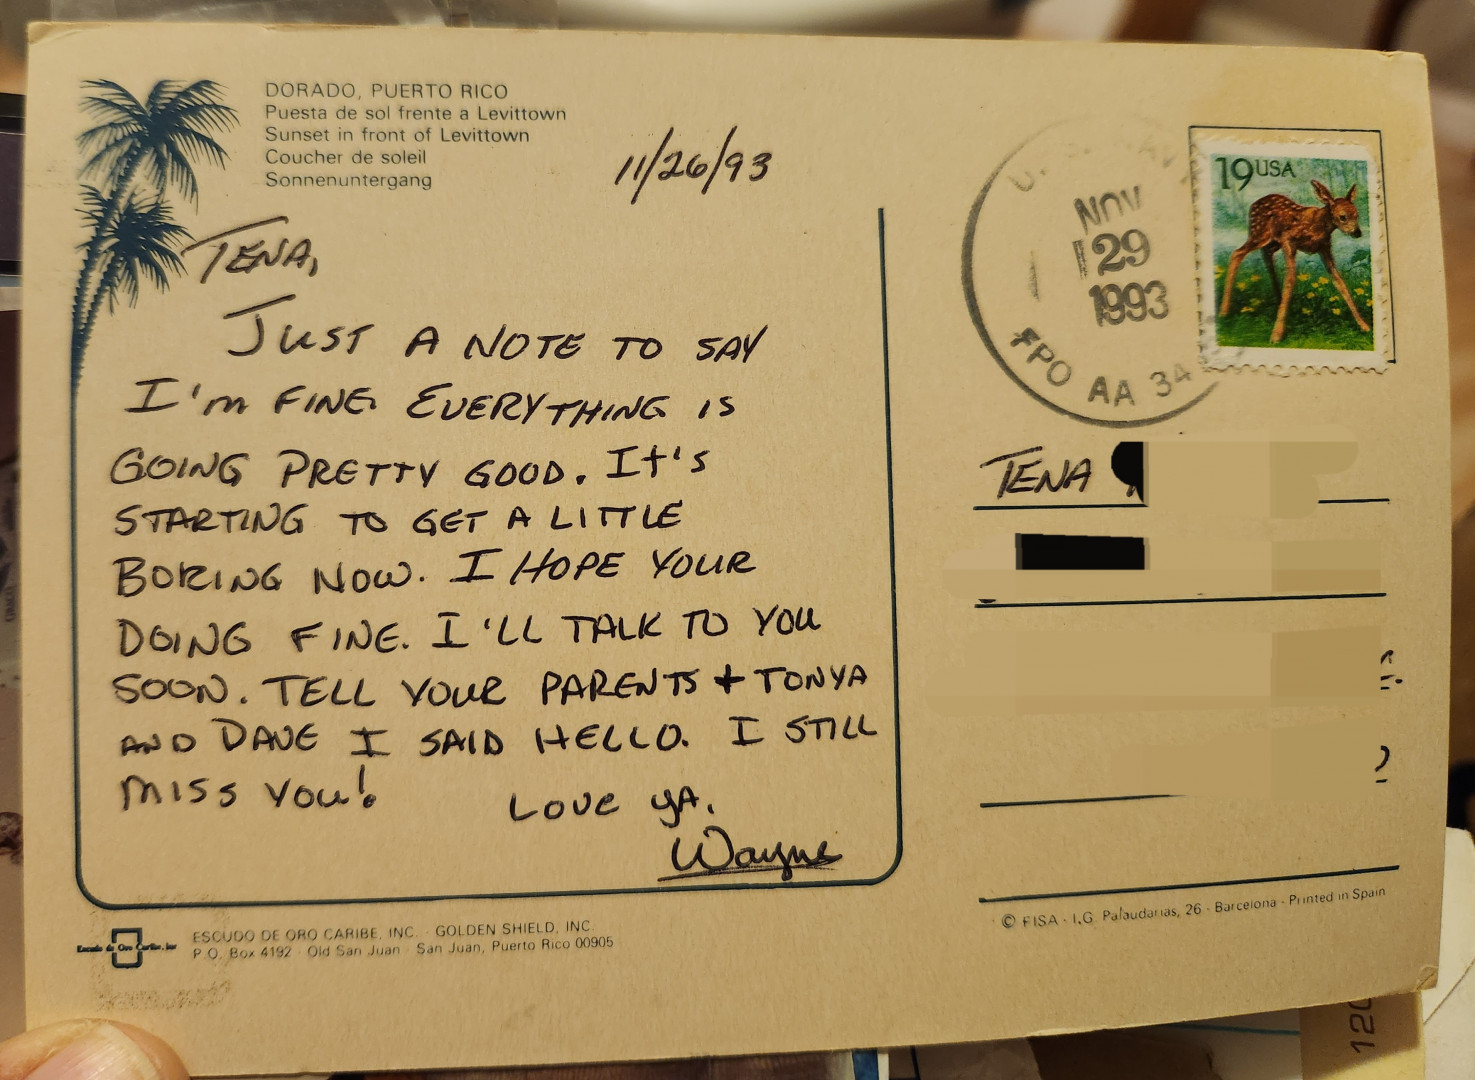 DORADO, PUERTO RICO
Puesta de sol frente a Levittown
Sunset in front of Levittown
Coucher de soleil
Sonnenuntergang
11/26/93
TENA,
JUST A NOTE TO SAY
I'm FINE. EVERYTHING IS
GOING PRETTY GOOD. It's
STARTING TO GET A LITTLE
BORING NOW. I HOPE YOUR
DOING FINE. I'LL TALK TO YOU
SOON. TELL YOUR PARENTS + TONYA
AND DAVE I SAID HELLO. I STILL
MISS YOU!
LOVE YA,
Wayne
19USA
NOV
29
1993
FPO AA 34
TENA
ESCUDO DE ORO CARIBE, INC. - GOLDEN SHIELD, INC.
P.O. Box 4192 - Old San Juan - San Juan, Puerto Rico 00905
Escudo de Oro Caribe, Inc
© FISA - I.G. Palaudarias, 26 - Barcelona - Printed in Spain
120